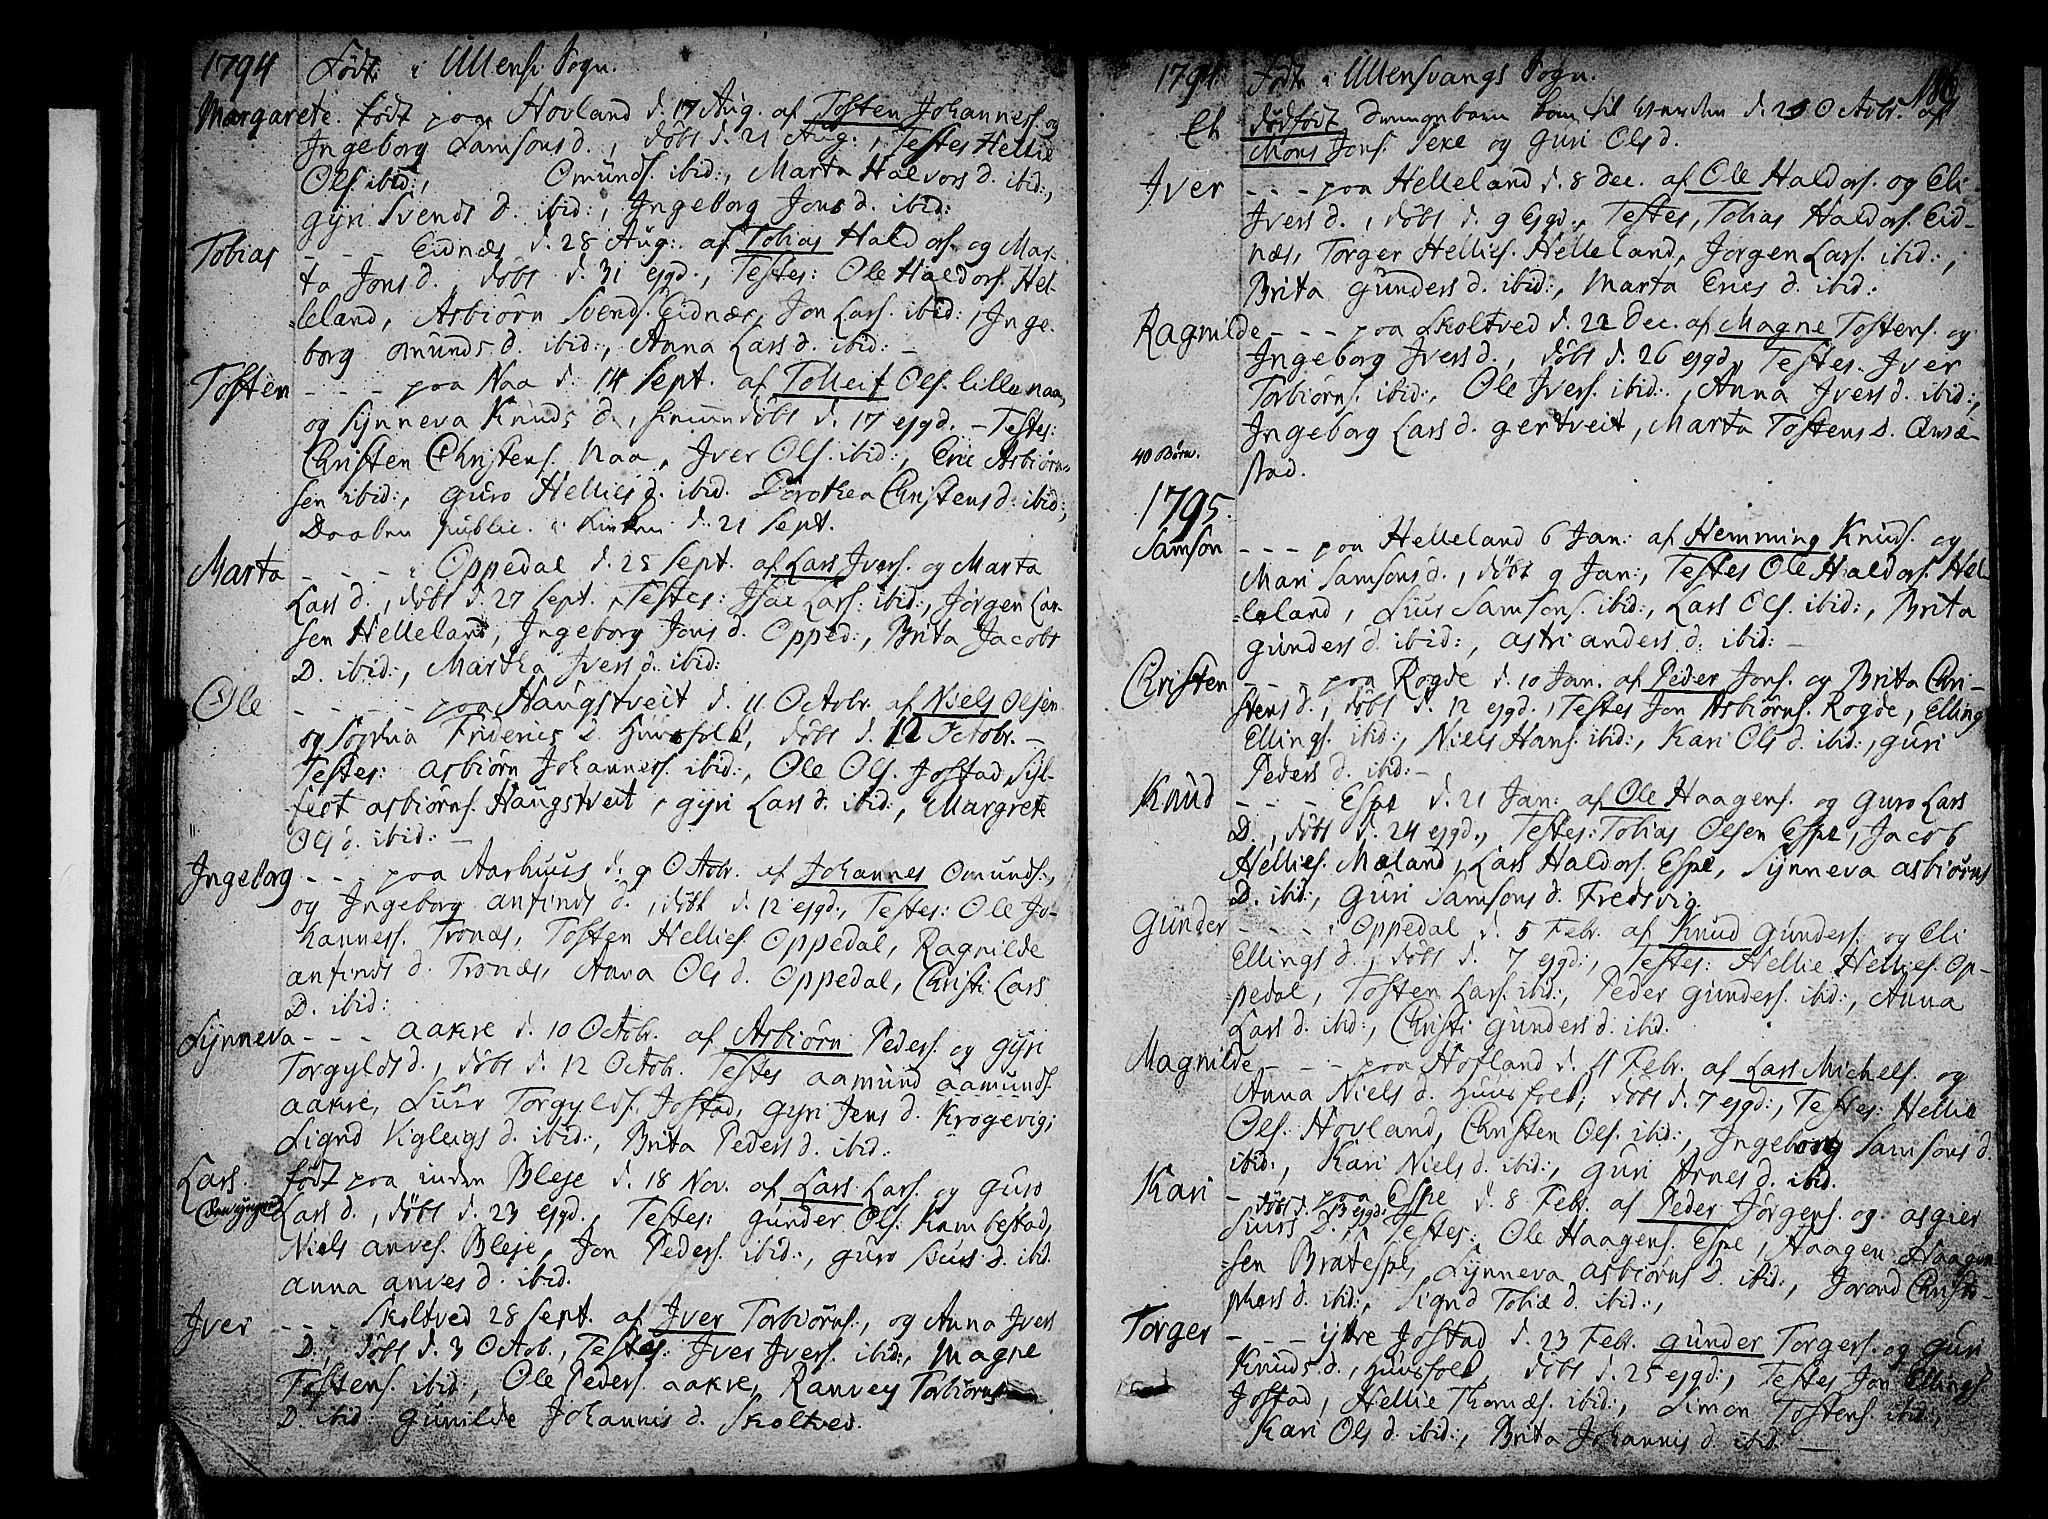 1794 Født i Ullens. Sogn.
Margarete. født paa Hovland d. 17 Aug. af Tosten Johannes. og
Ingeborg Samsons d., døbt d. 21 Aug:, Testes Hellie
Ols. ibid:, Omunds. ibid:, Marta Halvors d. ibid:,
gyri Svends d. ibid:, Ingeborg Jons d. ibid:
Tobias - - - Eidnæs d. 28 Aug: af Tobias Haldors. og Mar-
ta Jons d., døbt d. 31 ejgd., Testes: Ole Haldors. Hel-
leland, Asbiørn Svends. Eidnæs, Jon Lars. ibid:, Inge-
borg Omunds d. ibid:, Anna Lars d. ibid: -
Tosten - - - paa Naa d. 14 Sept. af Tolleif Ols. lille naa,
og Synneva Knuds d., hiemmedøbt d. 17 ejgd. - Testes:
Christen Christens. Naa, Iver Ols. ibid:, Eric Asbiørn-
sen ibid:, guro Hellies d. ibid. Dorothea Christens d: ibid:,
Daaben public. i Kirken d. 21 Sept.
Marta - - - i Oppedal d. 25 Sept. af Lars Ivers. og Marta
Lars d., døbt d. 27 Sept. Testes: Isac Lars: ibid:, Jørgen Lar-
sen Helleland, Ingeborg Jons d. Opped:, Brita Jacobs
D. ibid:, Martha Ivers d. ibid:
Ole - - - - paa Haugstveit d. 11 Octobr. af Niels Olsen
og Sophia Friderics D. Huusfolk, døbt d. 12 Octobr. -
Testes: Asbiørn Johanness. ibid:, Ole Ols. Jostad, Syl-
fest Asbiørns. Haugstveit, gyri Lars d. ibid:, Margrete
Ols d. ibid: -
Ingeborg - - - paa Aarhuus d. 9 Octobr. af Johannes Omunds.,
og Ingeborg Anfinds d., døbt d. 12 ejgd., Testes: Ole Jo-
hanness. Tronæs, Tosten Hellies. Oppedal, Ragnilde
Anfinds d. Tronæs, Anna Ols d. Oppedal, Christi Lars
D. ibid:
Synneva - - - Aakre d. 10 Octobr. af Asbiørn Peders. og gyri
Torgylds d., døbt d. 12 Octobr. Testes Aamund Aamunds.
Aakre, Siur Torgylds. Jostad, gyri Jens d. Krogevig;
Signd Kyleigs d. ibid:, Brita Peders d. ibid:
Lars. født paa inden Bleje d. 18 Nov. af Lars Lars. og guro
Den yngre Lars d., døbt d. 23 ejgd., Testes: gunder Ols. Kambestad,
Niels Anves. Bleje, Jon Peders. ibid:, guro Siurs d. ibid.
Anna Anves d. ibid.
Iver - - - Skoltved 28 Sept. af Iver Torbiørns:, og Anna Ivers
D., døbt d. 3 Octob., Testes: Iver Ivers. ibid:, Magne
Tostens. ibid:, Ole Peders. Aakre, Ranvey Torbiørns
D. ibid: gunilde Johannis d. Skoltved.
1794 Født i Ullensvangs Sogn. 186
Et dødfødt Drengebarn kom til Verden d. 29 Octobr. af
Mons Jons. Sexe og Guri Ols d.
Iver - - - paa Helleland d. 8 Dec. af Ole Haldors. og Eli
Ivers d., døbt d. 9 Ejgd., Testes, Tobias Haldors. Eid-
næs, Torger Hellies. Helleland, Jorgen Lars. ibid:,
Brita Gunders d. ibid:, Marta Erics d. ibid:
Ragnilde - - - paa Skoltved d. 22 Dec. af Magne Tostens. og
Ingeborg Ivers d., døbt d. 26 ejgd, Testes. Iver
Torbiørns. ibid:, Ole Ivers. ibid:, Anna Ivers d. ibid:,
Ingeborg Lars d. gertveit, Marta Tostens d. Qvæ-
40 Børn. stad.
1795.
Samson - - - paa Helleland 6 Jan: af Hemming Knuds. og
Mari Samsons d., døbt 9 Jan:, Testes Ole Haldors. Hel-
leland, Siur Samsons. ibid:, Lars Ols. ibid:, Brita
gunders d. ibid:, Astri Anders d. ibid: -
Christen - - - paa Rogde d. 10 Jan. af Peder Jons. og Brita Chri-
stens d., døbt d. 12 ejgd., Testes Jon Asbiørns. Rogde, Elling
Ellings. ibid:, Niels Hans. ibid:, Kari Ols d. ibid:, guri
Peders d. ibid: -
Knud - - - Espe d. 21 Jan: af Ole Haagens. og Guro Lars
D., døbt d. 24 ejgd., Testes: Tobias Olsen Espe, Jacob
Hellies. Mæland, Lars Haldors. Espe, Synneva Asbiørns
D. ibid:, Guri Samsons d. Fresvig.
Gunder - - - i Oppedal d. 5 Febr. af Knud Gunders. og Eli
Ellings d., døbt d. 7 ejgd:, Testes: Hellie Hellies. Op-
pedal, Tosten Lars. ibid:, Peder gunders. ibid:, Anna
Lars d. ibid:, Christi gunders d. ibid.
Magnilde - - - paa Hofland d. 11 Febr. af Lars Michels. og
Anna Niels d. Huusfolk, døbt d. 7 ejgd:, Testes: Hellie
Ols. Hovland, Christen Ols. ibid:, Ingeborg Samsons d.
ibid., Kari Niels d. ibid:, Guri Arnes d. ibid.
Kari - - paa Espe d. 8 Febr. af Peder Jørgens. og Asgier
døbt d. 13 ejgd:
Siurs D., Testes: Ole Haagens. Espe, Haagen Haagen-
sen Bratespe, Synneva Asbiørns d. ibid:, Jorand Christo-
phers d. ibid:, Signd Tobiæ d. ibid:,
Torger - - - ytre Jostad d. 23 Febr. gunder Torgers. og guri
Knuds d., huusfolk, døbt d. 25 ejgd:, Testes Jon Ellings.
Jostad, Hellie Thomæs. ibid:, Simon Tostens. ibid:,
Kari Ols d. ibid:, Brita Johannis d. ibid: -